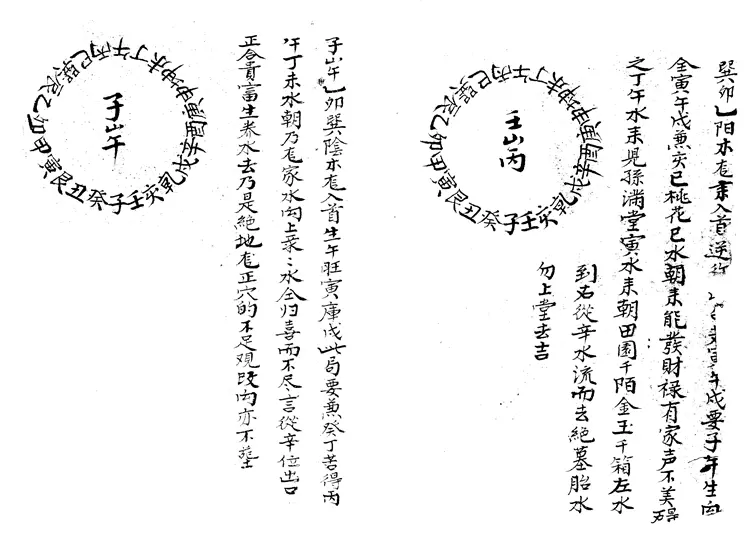 壬山丙
巽巳丙午丁未坤申庚酉辛戌乾亥壬子癸丑艮寅甲卯乙辰
巽卯乙陽水龍來入首逆行寅午戌要子午生向
全寅午戌兼亥巳桃花巳水朝來能發財祿有家声不美碍
之丁午水来児孫滿堂寅水来朝田園千陌金玉千箱左水
到右從辛水流而去絕墓胎水
勿上堂去吉
子山午
巽巳丙午丁未坤申庚酉辛戌乾亥壬子癸丑艮寅甲卯乙辰
子山午乙卯巽陰亦龍入首生午旺寅庫戌此局要兼癸丁若得丙
午丁未水朝乃龍家水向上彔彔水全归喜而不尽言從辛位出口
正合貴富生养水去乃是絕地龍正穴的不足观改向亦不塟